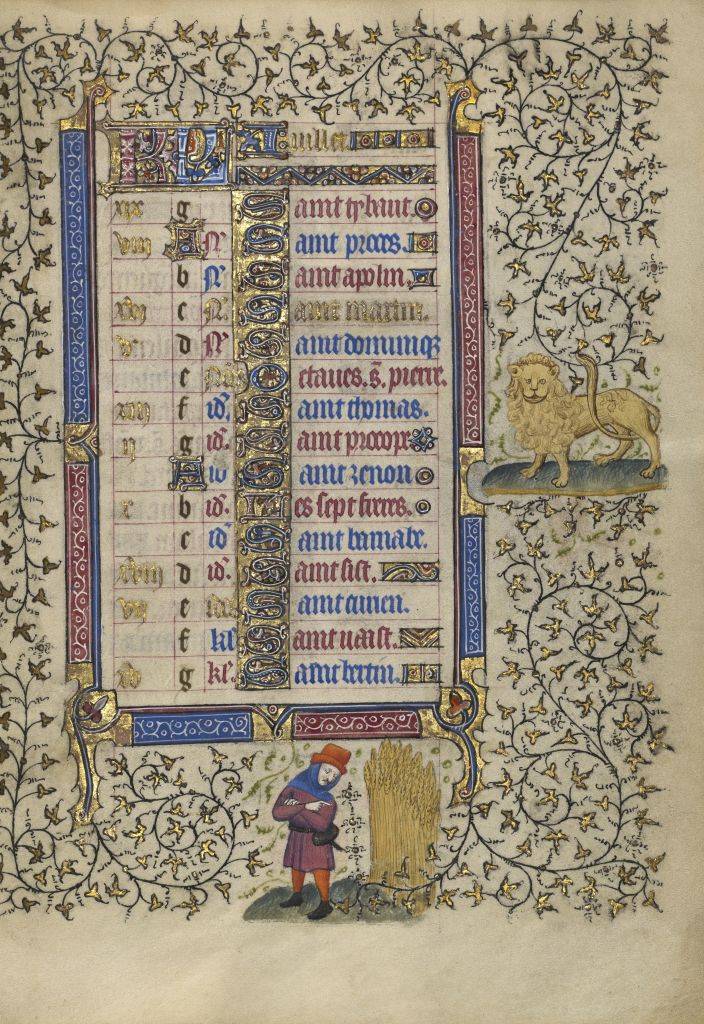 KL Juillet
xix g Saint tybaut
viii A Saint proces.
b Saint apolin.
c Saint martin.
d Saint dominique
e Octaues. s. pierre.
f id'. Saint thomas.
g id'. Saint procope
A id' Saint zenon
x b id'. Les sept freres.
c id' Saint barnabe.
xviii d id'. Saint sist.
vii e Saint
f kl' Saint
g kl'. Saint bertin.